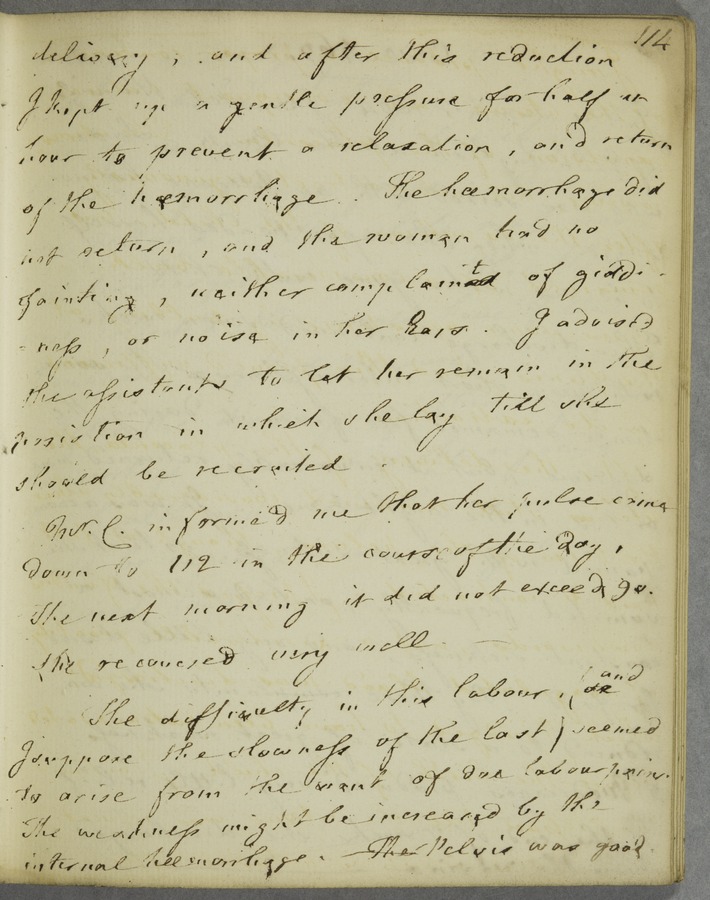 114
delivery, and after this reduction
I kept up a gentle pressure for half an
hour to prevent a relaxation, and return
of the hæmorrhage. The hæmorrhage did
not return, and the woman had no
fainting, neither complaint of giddi-
-ness, or noise in her Ears. I advised
the assistants to let her remain in the
position in which she lay till she
should be recruited.
Mr. C. informed me that her pulse came
down to 112 in the course of the Day,
The next morning it did not exceed 90.
She recovered very well —
The difficulty in this labour, (and
I suppose the slowness of the last) seemed
to arise from the want of due labour pain.
The weakness might be increased by the
internal hæmorrhage. The Pelvis was good.